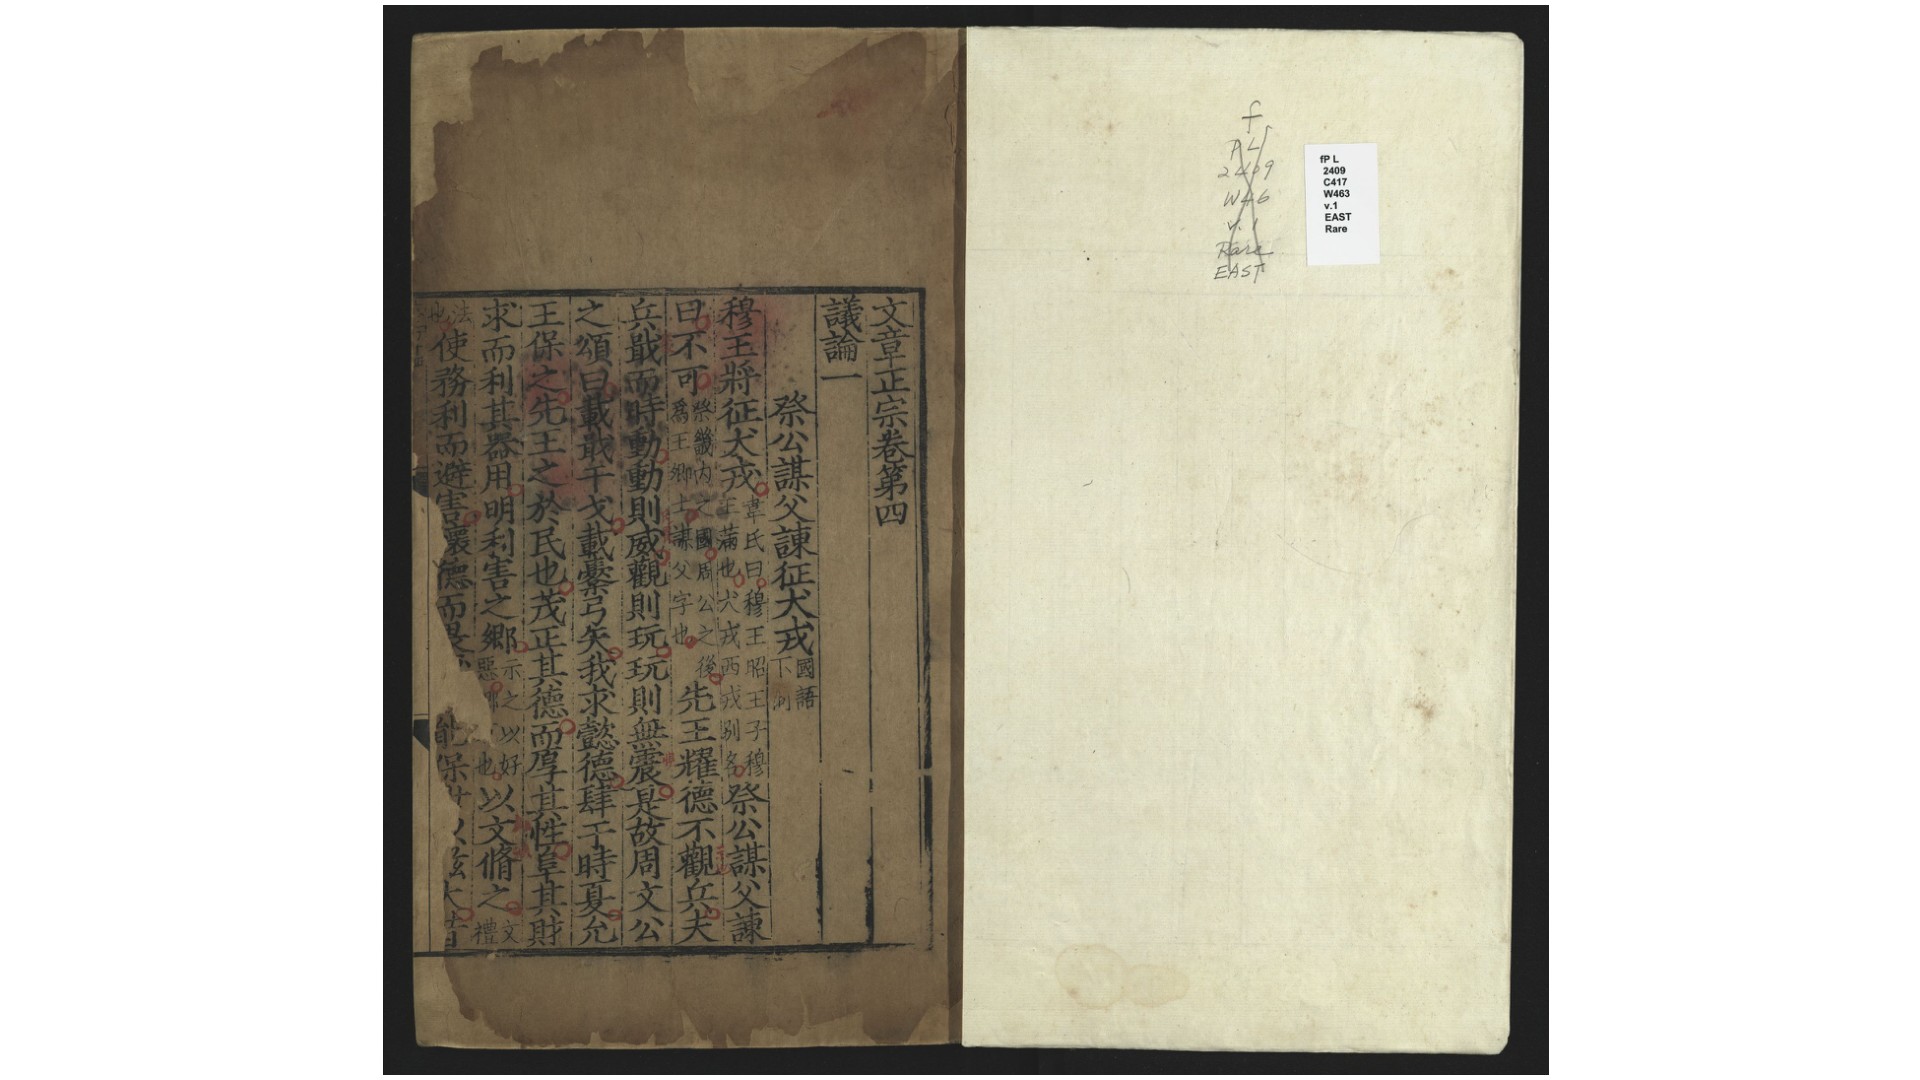 f
PL
2409
W46
v.1
Rare
EAST
fP L
2409
C417
W463
v.1
EAST
Rare
文章正宗卷第四
議論一
祭公謀父諫征犬戎國語下同
穆王將征犬戎韋氏曰穆王昭王子穆王滿也犬戎西戎別名祭公謀父諫
曰不可祭畿内之國周公之後爲王卿士謀父字也先王耀德不觀兵夫
兵戢而時動動則威觀則玩玩則無震是故周文公
之頌曰載戢干戈載櫜弓矢我求懿德肆于時夏允
王保之先王之於民也茂正其德而厚其性阜其財
求而利其器用明利害之鄉示之以好惡鄉也以文脩之文禮
法也使務利而避害懷德而畏能保世以滋大昔